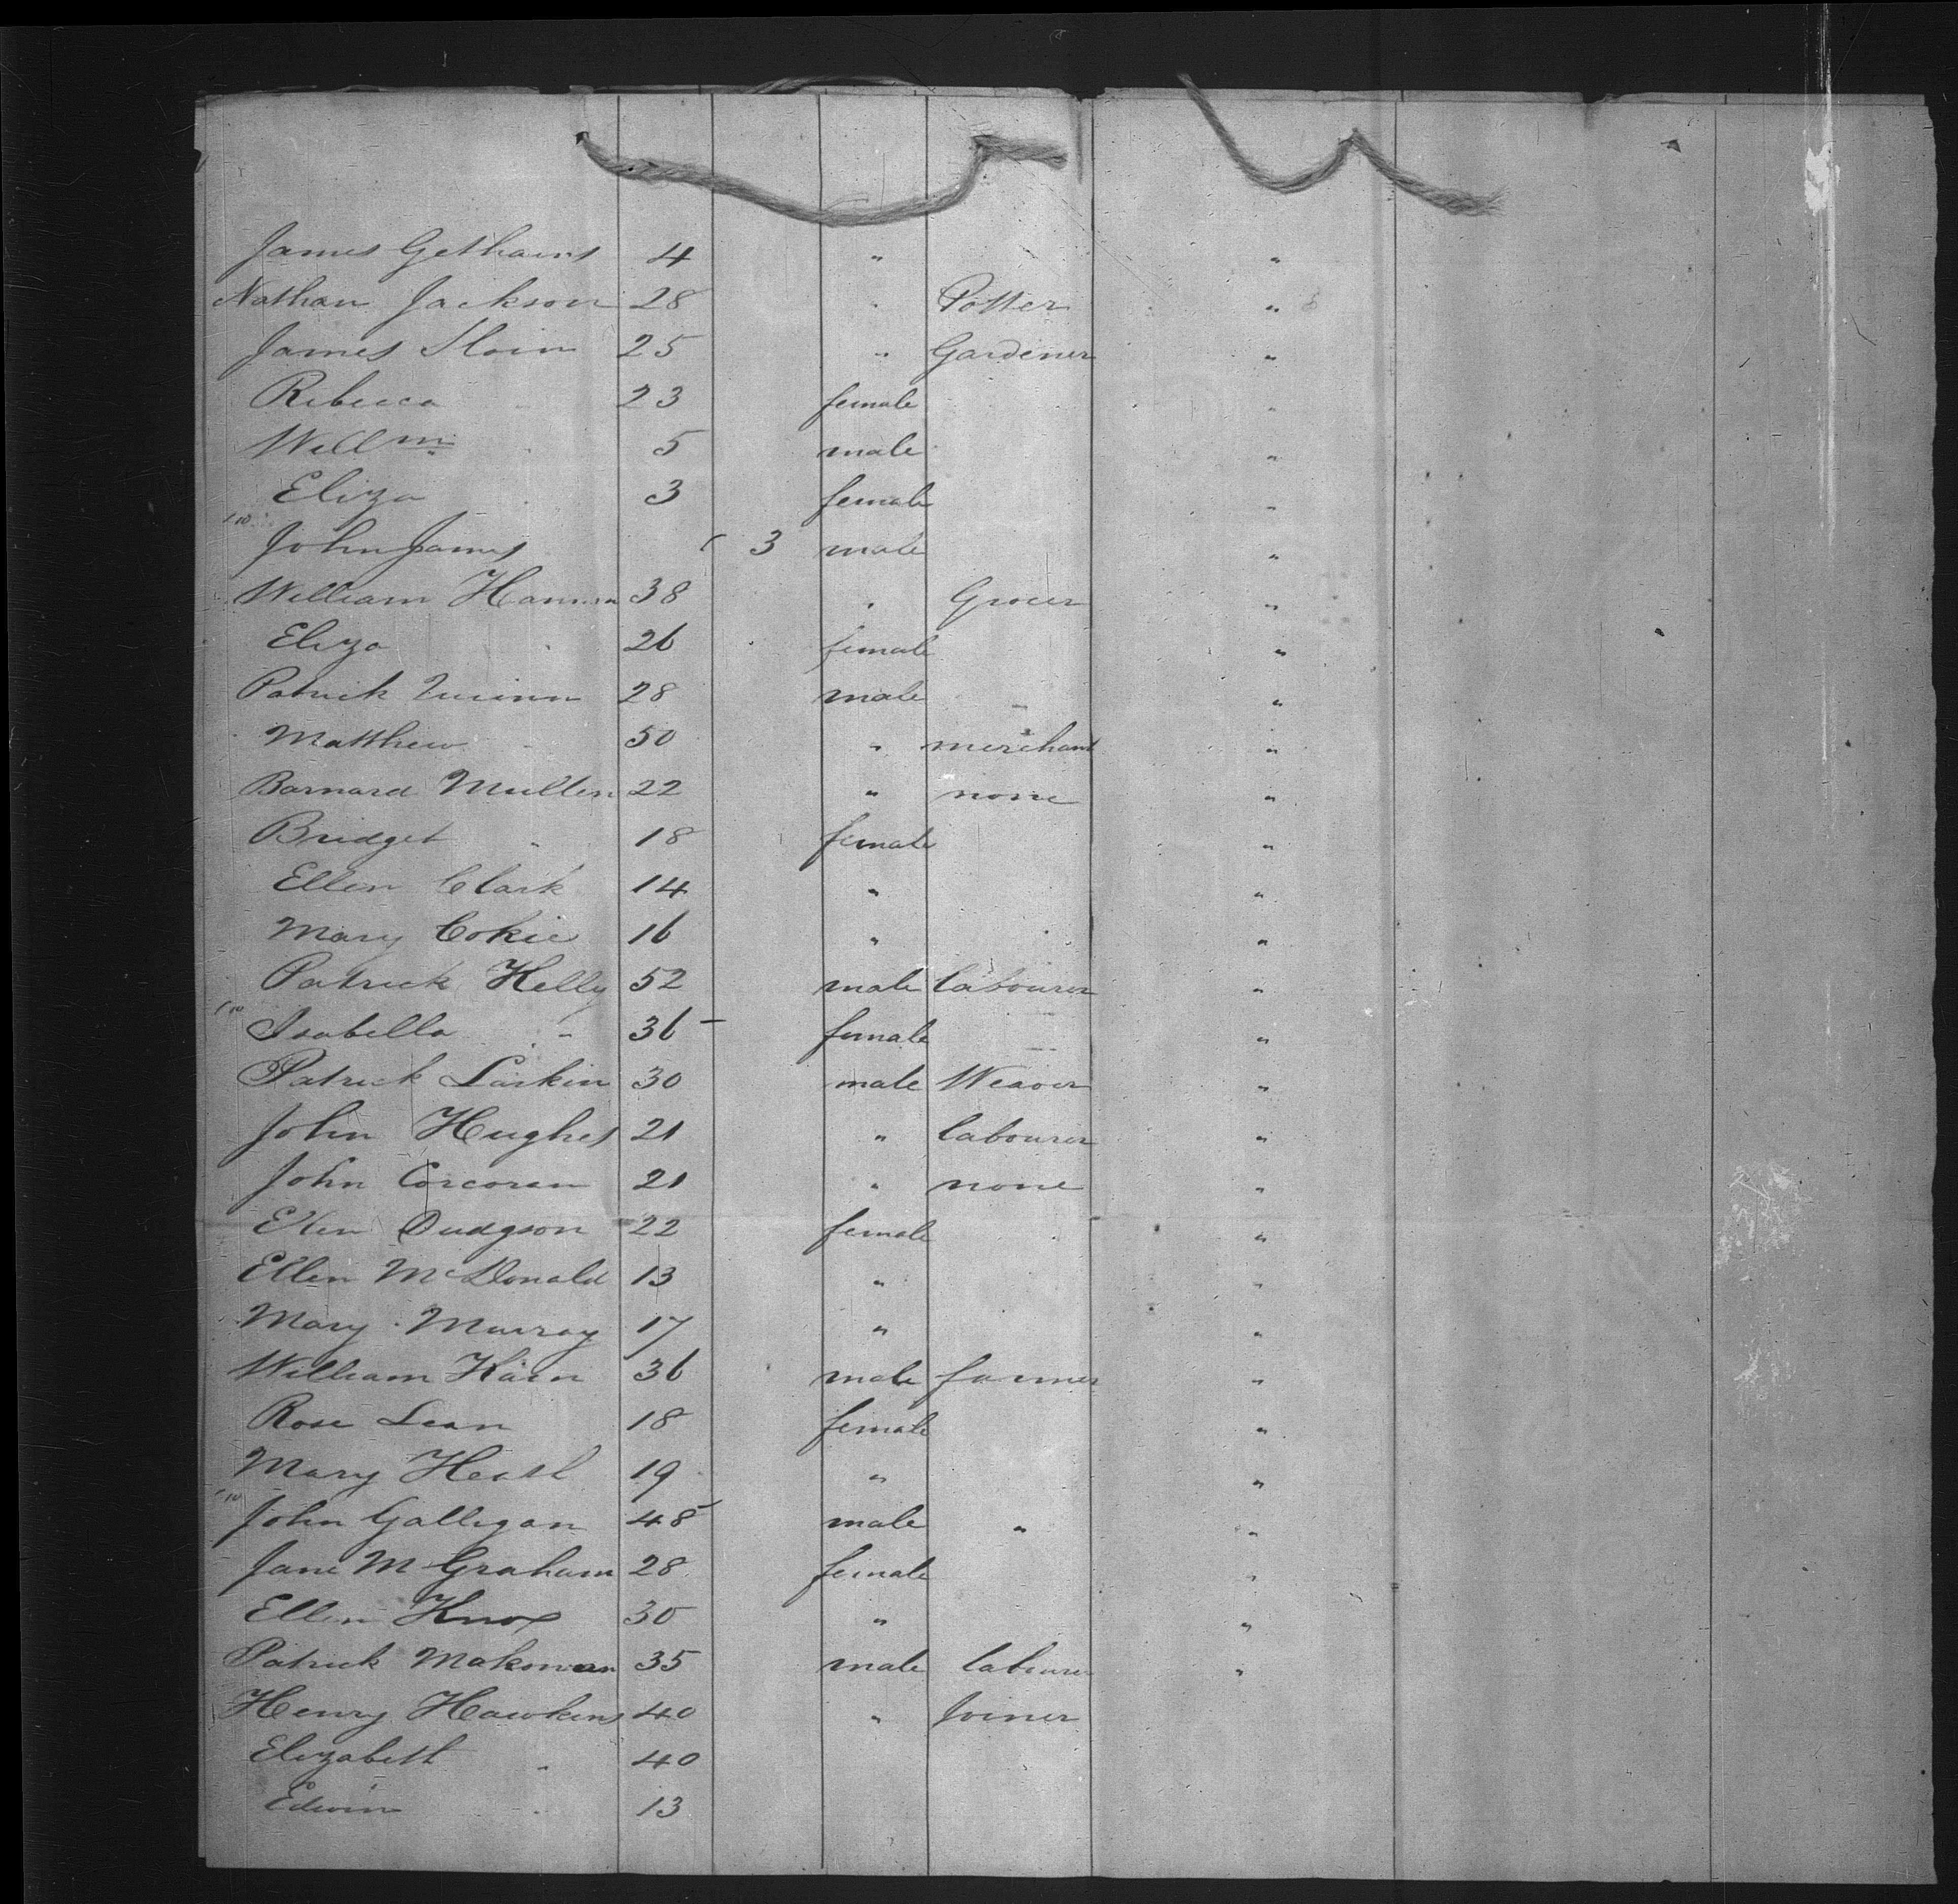 James Gethains 4 " "
Nathan Jackson 28 " Potter "
James Sloin 25 " Gardener "
Rebecca " 23 female "
Willm " 5 male "
Eliza " 3 female "
John James 3 male "
William Hannon 38 " Grocer "
Eliza " 26 female "
Patrick Quinn 28 male "
Matthew " 50 " merchant "
Barnard Mullen 22 " none "
Bridget " 18 female "
Ellen Clark 14 " "
Mary Cokie 16 " "
Patrick Kelly 52 male labourer "
Isabella " 36 female "
Patrick Larkin 30 male Weaver "
John Hughes 21 " labourer "
John Corcoran 21 " none "
Ellen Dudgson 22 female "
Ellen McDonald 13 " "
Mary Murray 17 " "
William Kain 36 male farmer "
Rose Lean 18 female "
Mary Heasl 19 " "
John Galligan 48 male " "
Jane M Graham 28 female "
Ellen Knox 30 " "
Patrick Makowan 35 male labourer "
Henry Hawkins 40 " Joiner
Elizabeth " 40
Edwin " 13